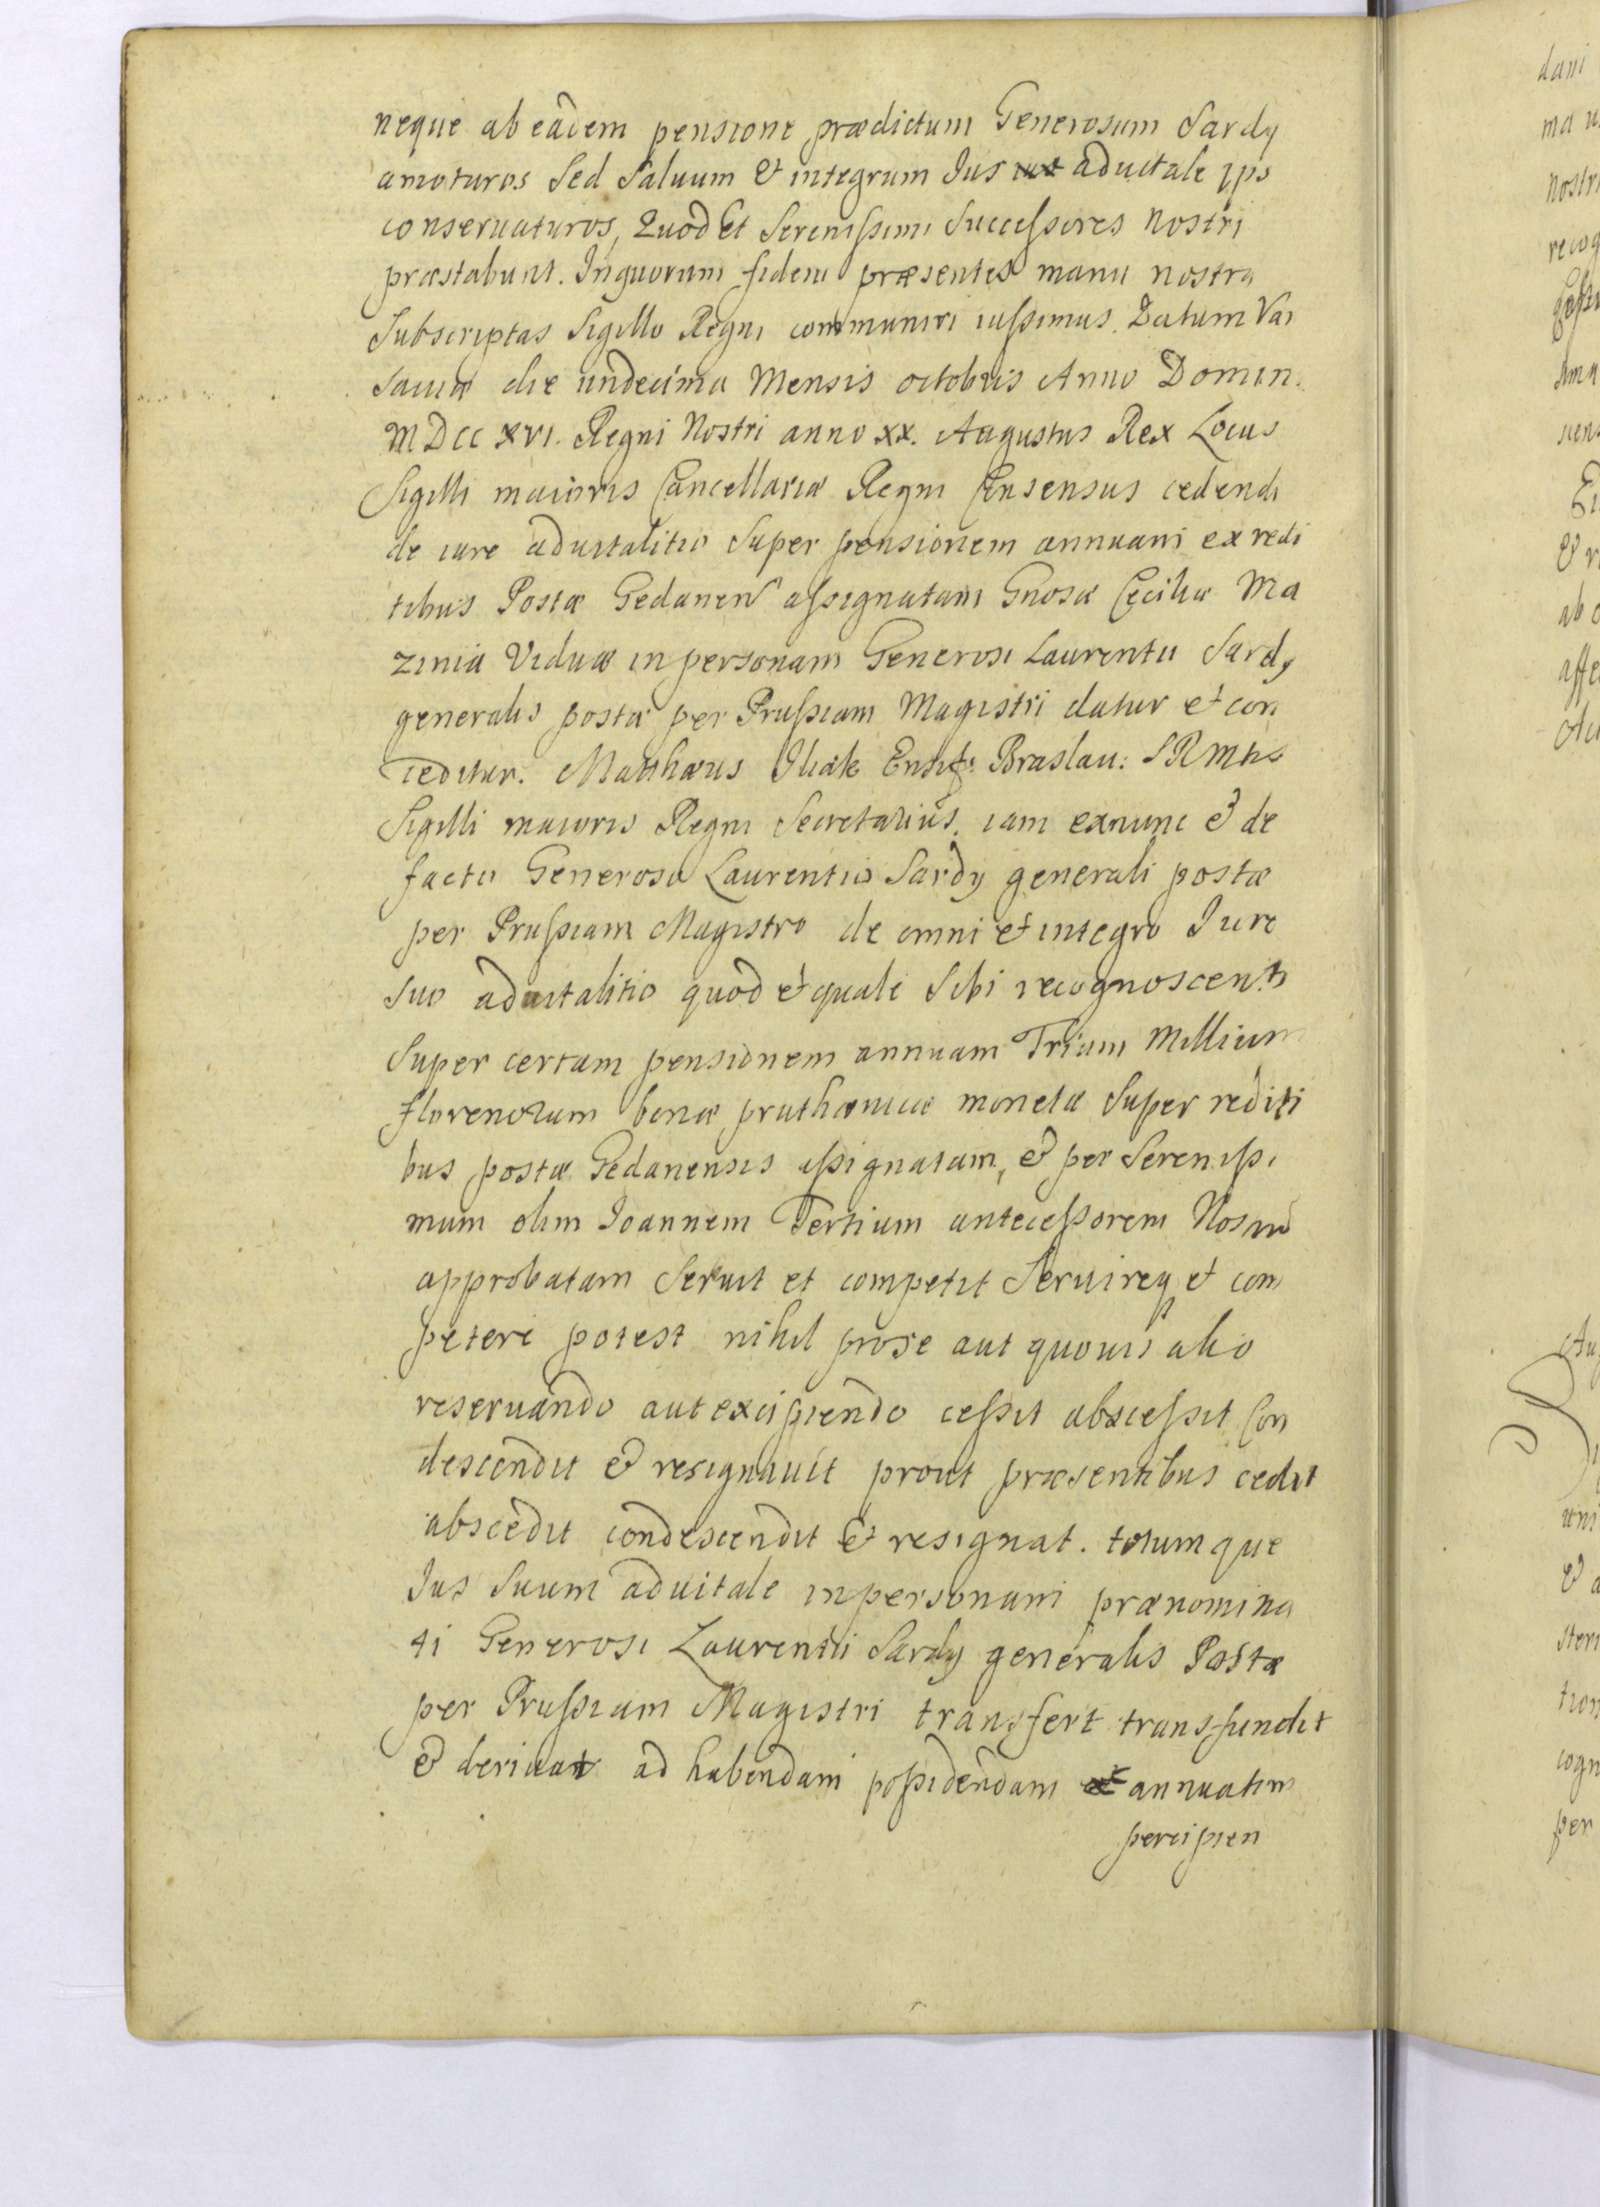 neque ab eadem pensione prædictum Generosum Sardy
amoturos Sed Saluum et integrum Jus aduitale ips
conseruaturos, Quod Et Serenissimi Successores nostri
præstabunt. Inquorum fidem præsentes manu nostra
Subscriptas Sigillo Regni communiri iussimus. Datum Var
sauiæ die undecima Mensis octobris Anno Domin.
MDCCXVI. Regni Nostri anno XX. Augustus Rex Locus
Sigilli maioris Cancellariæ Regni Consensus cedendi
de iure aduitalitio Super pensionem annuam ex redi
tibus Postæ Gedanen assignatam Gnosæ Cæciliæ Ma
zinia Viduæ in personam Generosi Laurentii Sardy
generalis postæ per Prussiam Magistri datur et con
ceditur. Matthæus Braslau: SRMtis
Sigilli maioris Regni Secretarius. iam exnunc & de
facto Generoso Laurentio Sardy generali postæ
per Prussiam Magistro de omni et integro Jure
Suo aduitalitio quod et quale Sibi recognoscenti
Super certam pensionem annuam Trium Millium
florenorum bonæ pruthænicæ monetæ Super rediti
bus postæ Gedanensis assignatam, & per Serenissi
mum olim Joannem Tertium antecessorem Nostru
approbatam Seruit et competit Seruireq et com
petere potest nihil prose aut quouis alio
reseruando aut excipiendo cessit abscessit Con
descendit & resignauit prout præsentibus cedit
abscedit condescendit et resignat. totumque
Jus Suum aduitale inpersonam prænomina
ti Generosi Laurentii Sardy generalis Postæ
per Prussiam Magistri transfert transfundit
& deriuat ad habendam possidendam annuatim
percipien
dani
nostr
recog
ab
affe
uni
cogn
per